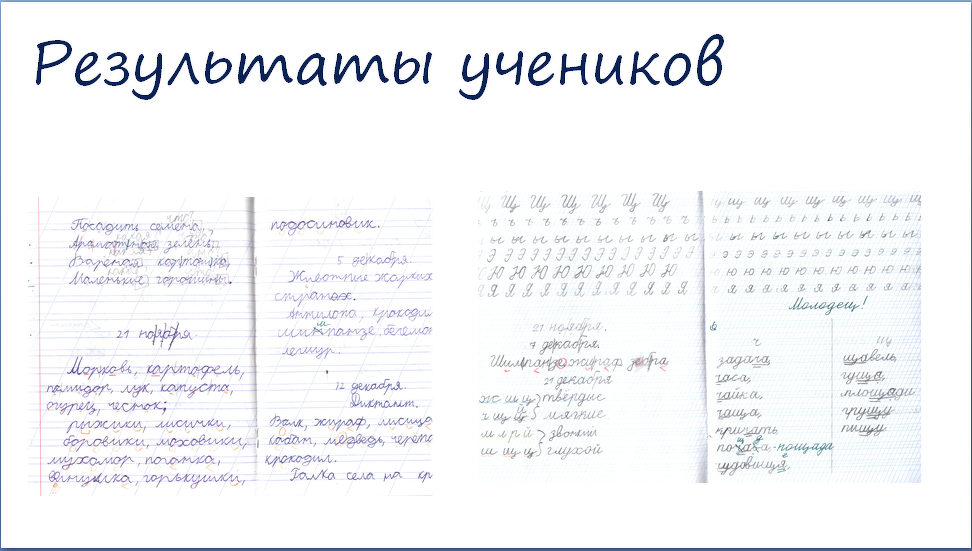 Результаты учеников
что?
Посадить семена,
Ароматная зелень,
Вареная картошка,
Маленькие горошины.
21 ноября.
Морковь, картофель,
помидор, лук, капуста,
огурец, чеснок;
рыжики, лисички,
боровики, моховики,
мухомор, поганка,
волнушка, горькушки,
подосиновик.
5 декабря.
Животные жарких
странах.
Антилопа, крокодил
шимпанзе, бегемот
лемур.
12 декабря.
Диктант.
Волк, жираф, лисица
кабан, медведь, черепа
крокодил.
Галка села на кр
Щ Щ Щ Щ Щ Щ Щ
ъ ъ ъ ъ ъ ъ ъ ъ ъ ъ
ы ы ы ы ы ы ы ы ы ы
Э Э Э Э Э Э Э Э Э Э
Ю Ю Ю Ю Ю Ю Ю Ю
Я Я Я Я Я Я Я Я Я Я
21 ноября.
7 декабря.
Шимпанзе, жираф, зебра
21 декабря
ж ш щ } твёрдые
ч щ й } мягкие
м л р й } звонкий
ш щ } глухой
щ щ щ щ щ щ щ щ
ь ь ь ь ь ь ь ь ь ь
ы ы ы ы ы ы ы ы ы
э э э э э э э э э э
ю ю ю ю ю ю ю ю ю
я я я я я я я я я я
Молодец!
ч щ
задача щавель
часа, гуща,
чайка, площади
чаща, грущу
кричать пищу
пощада
чудовища,